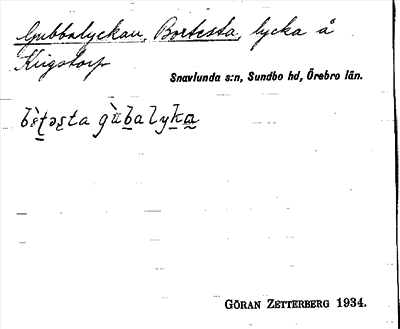 Gubbalyckan, Bortesta, lycka å
Krigstorp
Snavlunda s:n, Sundbo hd, Örebro län.
gùbalyka
GÖRAN ZETTERBERG 1934.